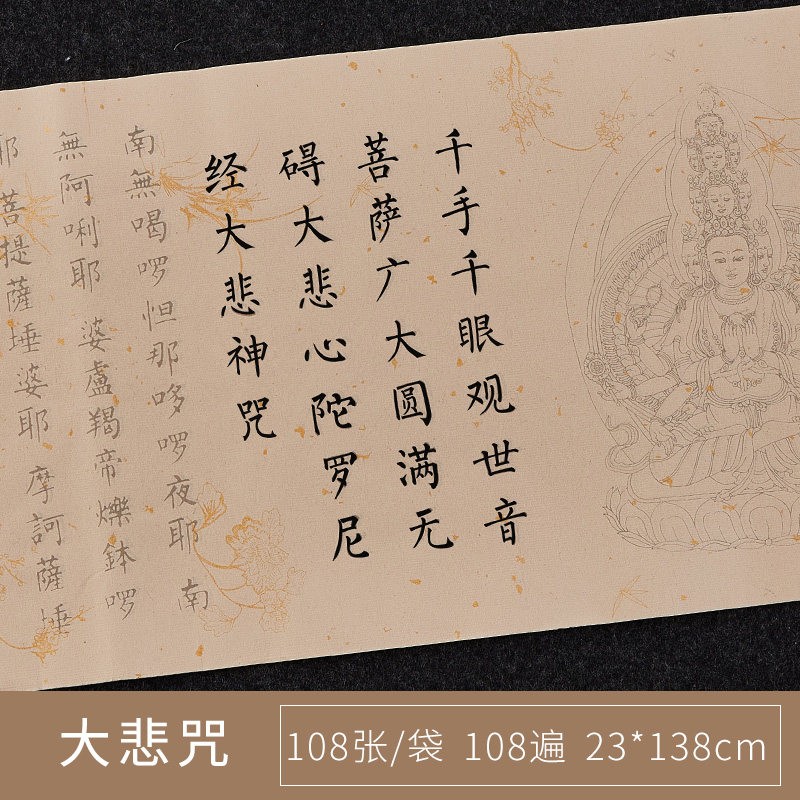 千手千眼观世音
菩萨广大圆满无
碍大悲心陀罗尼
经大悲神咒
南無喝啰怛那哆啰夜耶 南
無阿唎耶 婆盧羯帝爍鉢啰
耶 菩提薩埵婆耶 摩訶薩埵
大悲咒
108张/袋 108遍 23*138cm